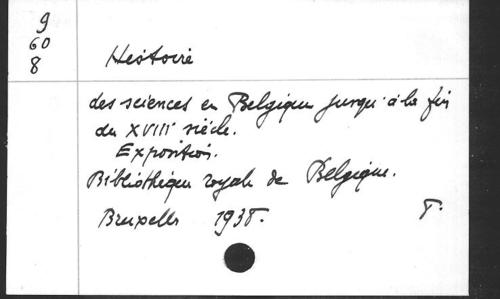 9
60
8
Histoire
des sciences en Belgique jusqu'à la fin
du XVIIIe siècle.
Exposition.
Bibliothèque royale de Belgique.
Bruxelles 1938. T.